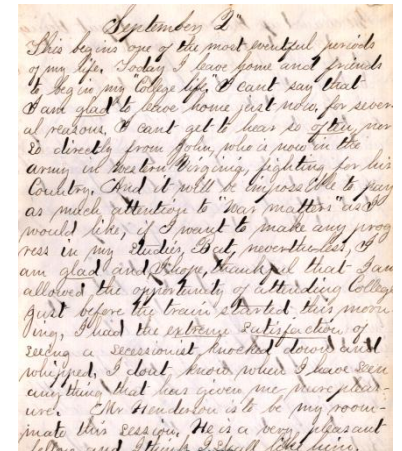 September 2"
This begins one of the most eventful periods
of my life. Today I leave home and friends
to begin my "College life." I cant say that
I am glad to leave home just now, for sever-
al reasons. I cant get to hear so often, nor
so directly from John, who is now in the
army in Western Virginia, fighting for his
Country. And it will be impossible to pay
as much attention to "War matters" as I
would like, if I want to make any prog
ress in my studies, But, nevertheless, I
am glad and I hope, thankful that I am
allowed the opportunity of attending College
Just before the train started this morn
ing, I had the extreme satisfaction of
seeing a secessionist knocked down and
whipped. I dont know when I have seen
anything that has given me more pleas-
ure. Mr Henderson is to be my room-
mate this session. He is a very pleasant
fellow and I think I shall like him.